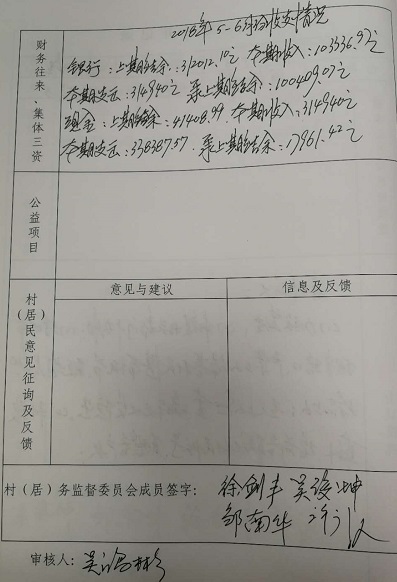 2018年5-6月份收支情况
财务往来、集体三资
银行:上期结余:312012.10元 本期收入:103336.97元
本期支出:314940元 累上期结余:100409.07元
现金:上期结余:41408.99 本期收入:314940元
本期支出:338387.57 累上期结余:17961.42元
公益项目
村(居)民意见征询及反馈
意见与建议
信息及反馈
村(居)务监督委员会成员签字:
徐剑丰 吴俊坤
邹南华
审核人:吴